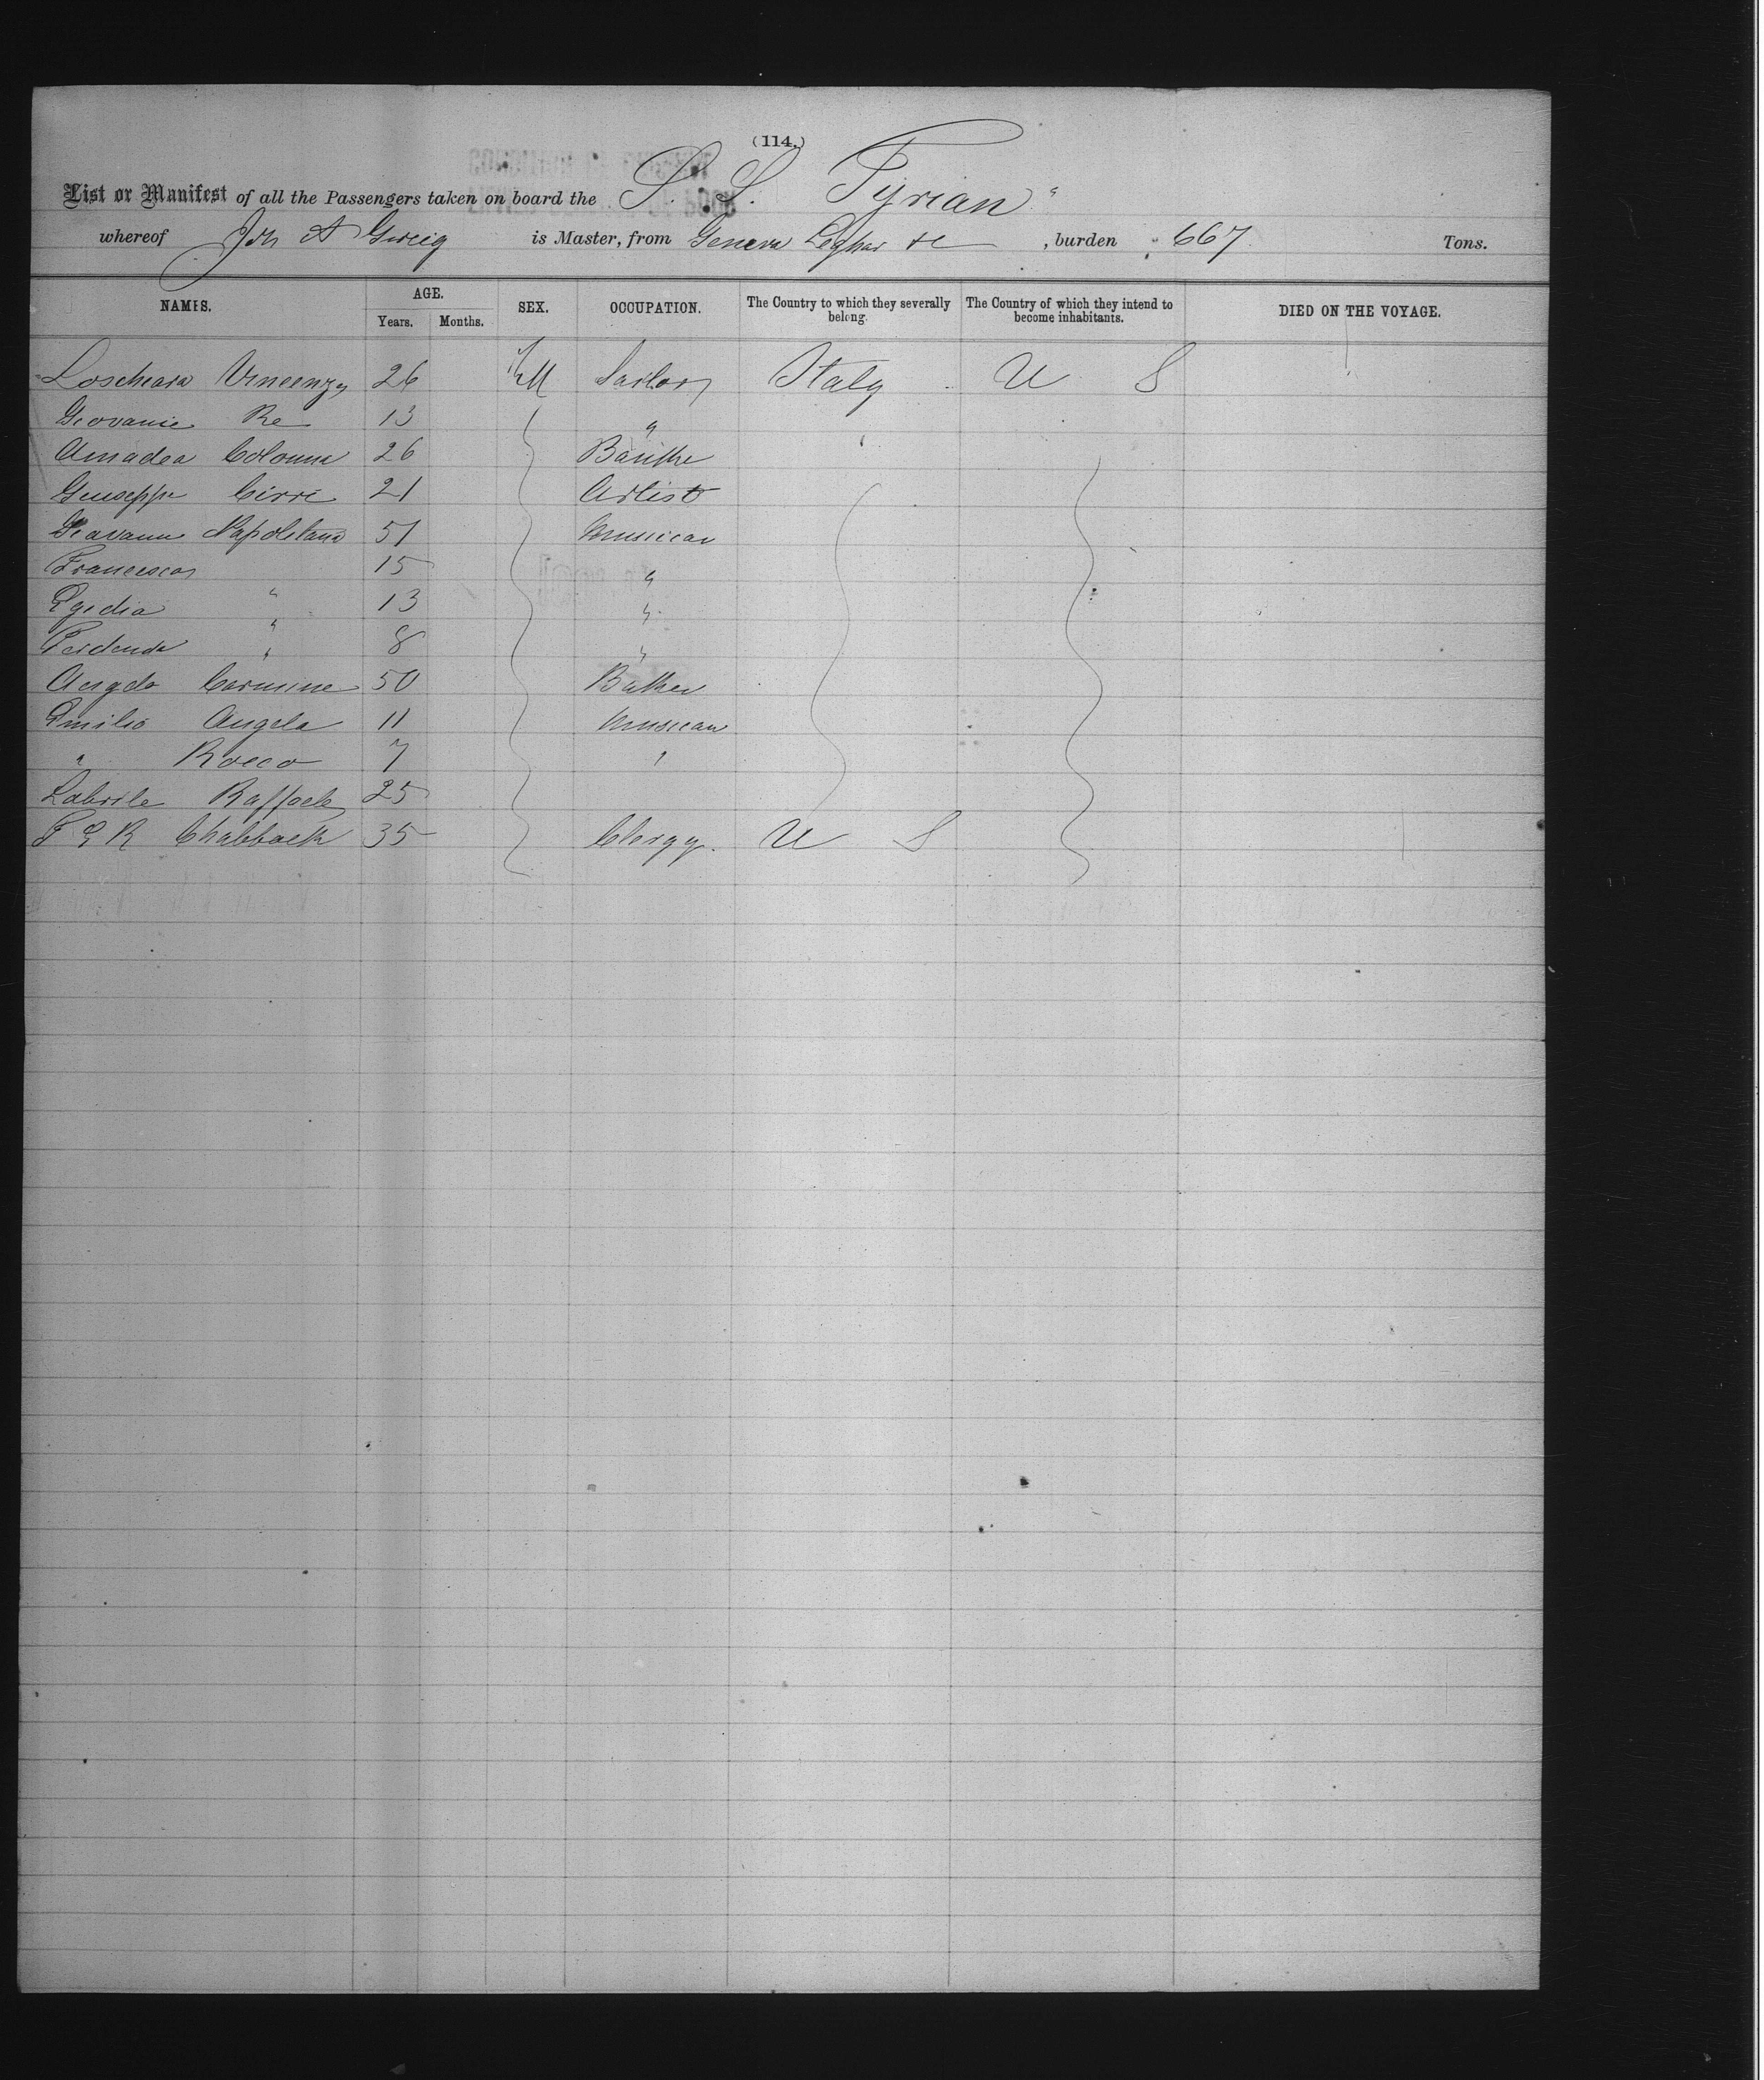 (114.)
List or Manifest of all the Passengers taken on board the S. S. Tyrian "
whereof Jon A Greig is Master, from Genera Leghor &c , burden 667 Tons.
NAMES. AGE. SEX. OCCUPATION. The Country to which they severally belong. The Country of which they intend to become inhabitants. DIED ON THE VOYAGE.
Years. Months.
Loscheara Vincenzo 26 M Sailor Italy U S
Geovanie Re 13 "
Amadea Colonna 26
Giuseppe Cirri 21 Artist
Geavanni Napoletana 51 Musician
Francesca 15 "
Egidia " 13 "
" 8 "
Angelo Carmine 50
Emilio Angela 11 Musician
" Rocco 7 "
Labrile Raffaele 25
T E R Chabback 35 Clergy. U S